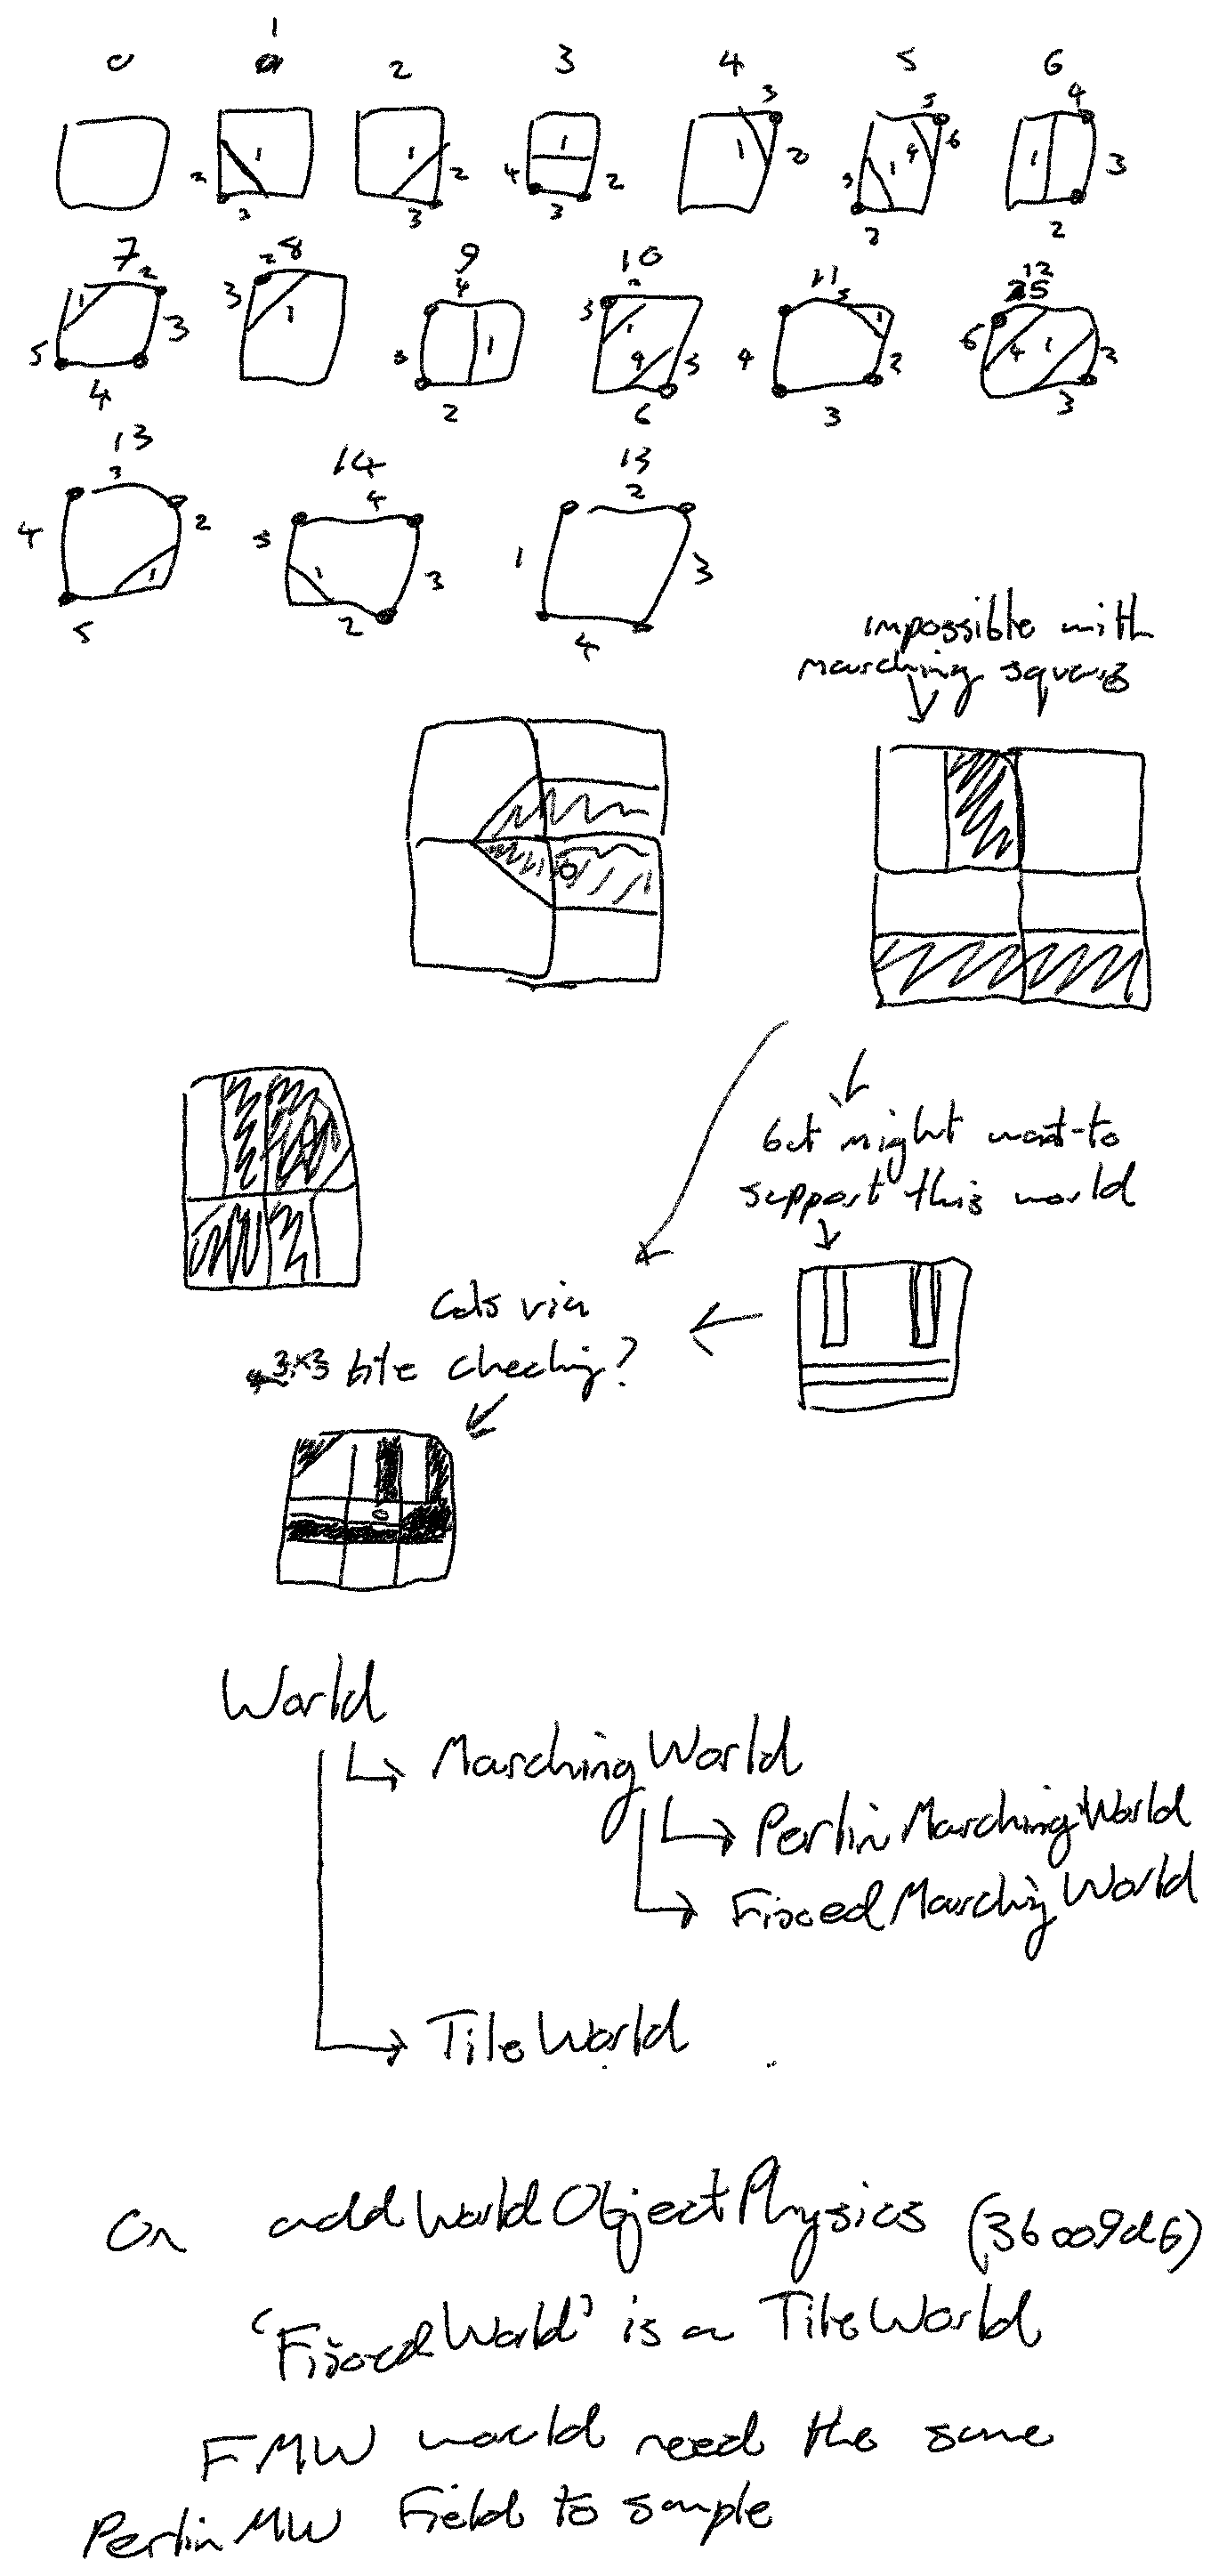 0 1 2 3 4 5 6
3 5 4
1 1 1 1 4 6
2 2 4 2 2 3 1 1 3
3 3 3 2 2
7 8 9 10 11 12
2 2 4 2 5 5
1 3 3 1 6
3 1 1 4 4 1 2
5 3 4 5 2
4 2 6 3 3
13 14 13
3 4 2
4 2 5 1
1 1 3 3
5 2 4
impossible with
marching squares
but might want to
support this world
Cols via
3x3 bite checking?
World
MarchingWorld
PerlinMarchingWorld
FixedMarchingWorld
TileWorld
On addWorldObjectPhysics (36009d6)
'FixedWorld' is a TileWorld
FMW would need the same
PerlinMW field to sample